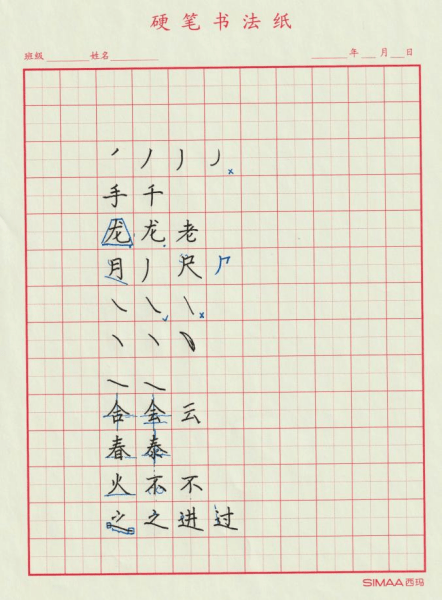 硬笔书法纸
班级 姓名 年 月 日
丿 丿 丿 丿 ×
手 千
龙 龙 老
月 丿 尺 ⺁
㇏ ㇏ ✓ ㇏ ×
丶 丶
㇏ ㇏
舍 会 云
春 泰
火 不 不
之 之 进 过
SIMAA西玛